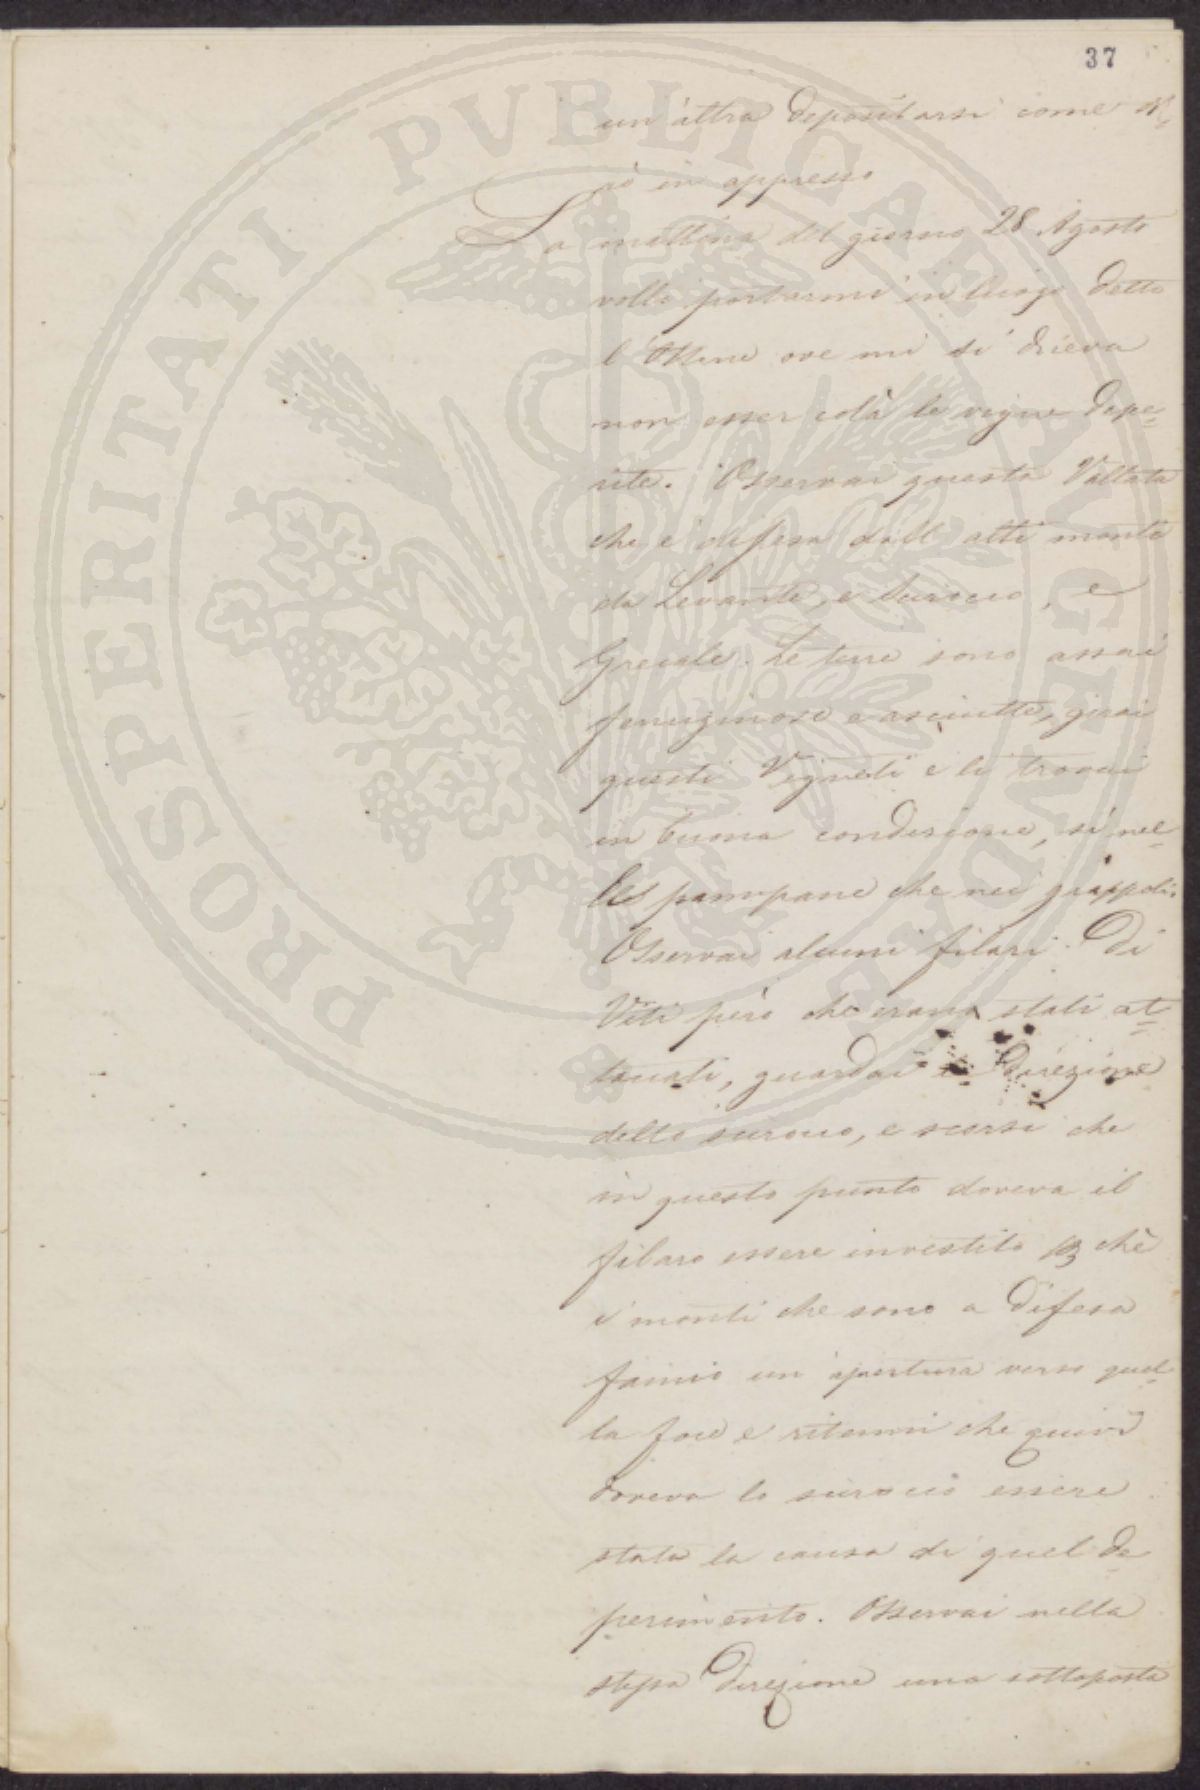 37
un'altra depositarsi come di=
rò in appresso
La mattina del giorno 28 Agosto
volli portarmi in luogo detto
l'Ottone ove mi si diceva
non esser colà le vigne depe=
rite. Osservai questa Vallata
che è difesa dall alti monti
da Levante, e Scirocco, e
Grecale. Le terre sono assai
feruginose e asciutte, girai
questi Vigneti e li trovai
in buona condizione, sì nel=
le pampane che nei grappoli.
Osservai alcuni filari di
Viti però che erano stati at=
taccati, guardai la direzione
dello scirocco, e scorsi che
in questo punto doveva il
filaro essere investito chè
i monti che sono a difesa
fanno un apertura verso quel=
la foce e ritenni che quivi
doveva lo scirocco essere
stata la causa di quel de
perimento. Osservai nella
stessa direzione una sottoposta
PROSPERITATI PVBLICAE AVGENDAE